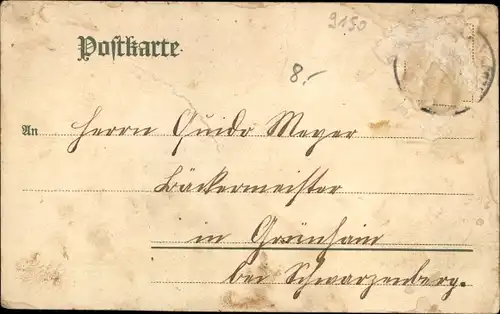 9150
Postkarte
8.-
An Herrn Guido Meyer
Bäckermeister
in Grünhain
bei Schwarzenberg.